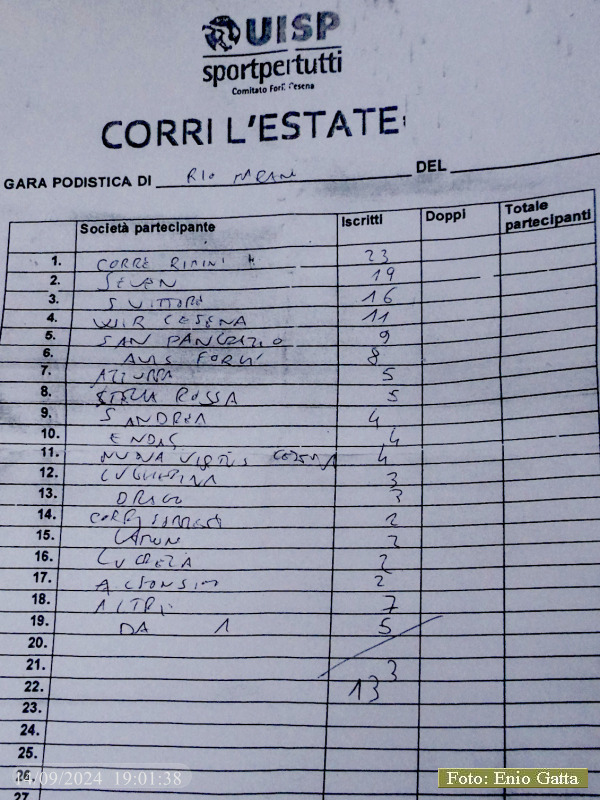 UISP
sportpertutti
Comitato Forlì Cesena
CORRI L'ESTATE
GARA PODISTICA DI RIO MARANO DEL
Società partecipante Iscritti Doppi Totale partecipanti
1. CORRE RIMINI 23
2. SEVEN 19
3. S VITTORE 16
4. WIR CESENA 11
5. SAN PANCRAZIO 9
6. AVIS FORLI' 8
7. AZZURRA 5
8. STELLA ROSSA 5
9. S ANDREA 4
10. ENDAS 4
11. NUOVA VIRTUS CESENA 4
12. LUGHESINA 3
13. DRAGO 3
14. CORRI 2
15. LAMONE 2
16. LUCREZIA 2
17. ALFONSIN 2
18. ALTRI 7
19. DA 1 5
20.
21. 3
22. 13
23.
24.
25.
26.
27
04/09/2024 19:01:38
Foto: Enio Gatta